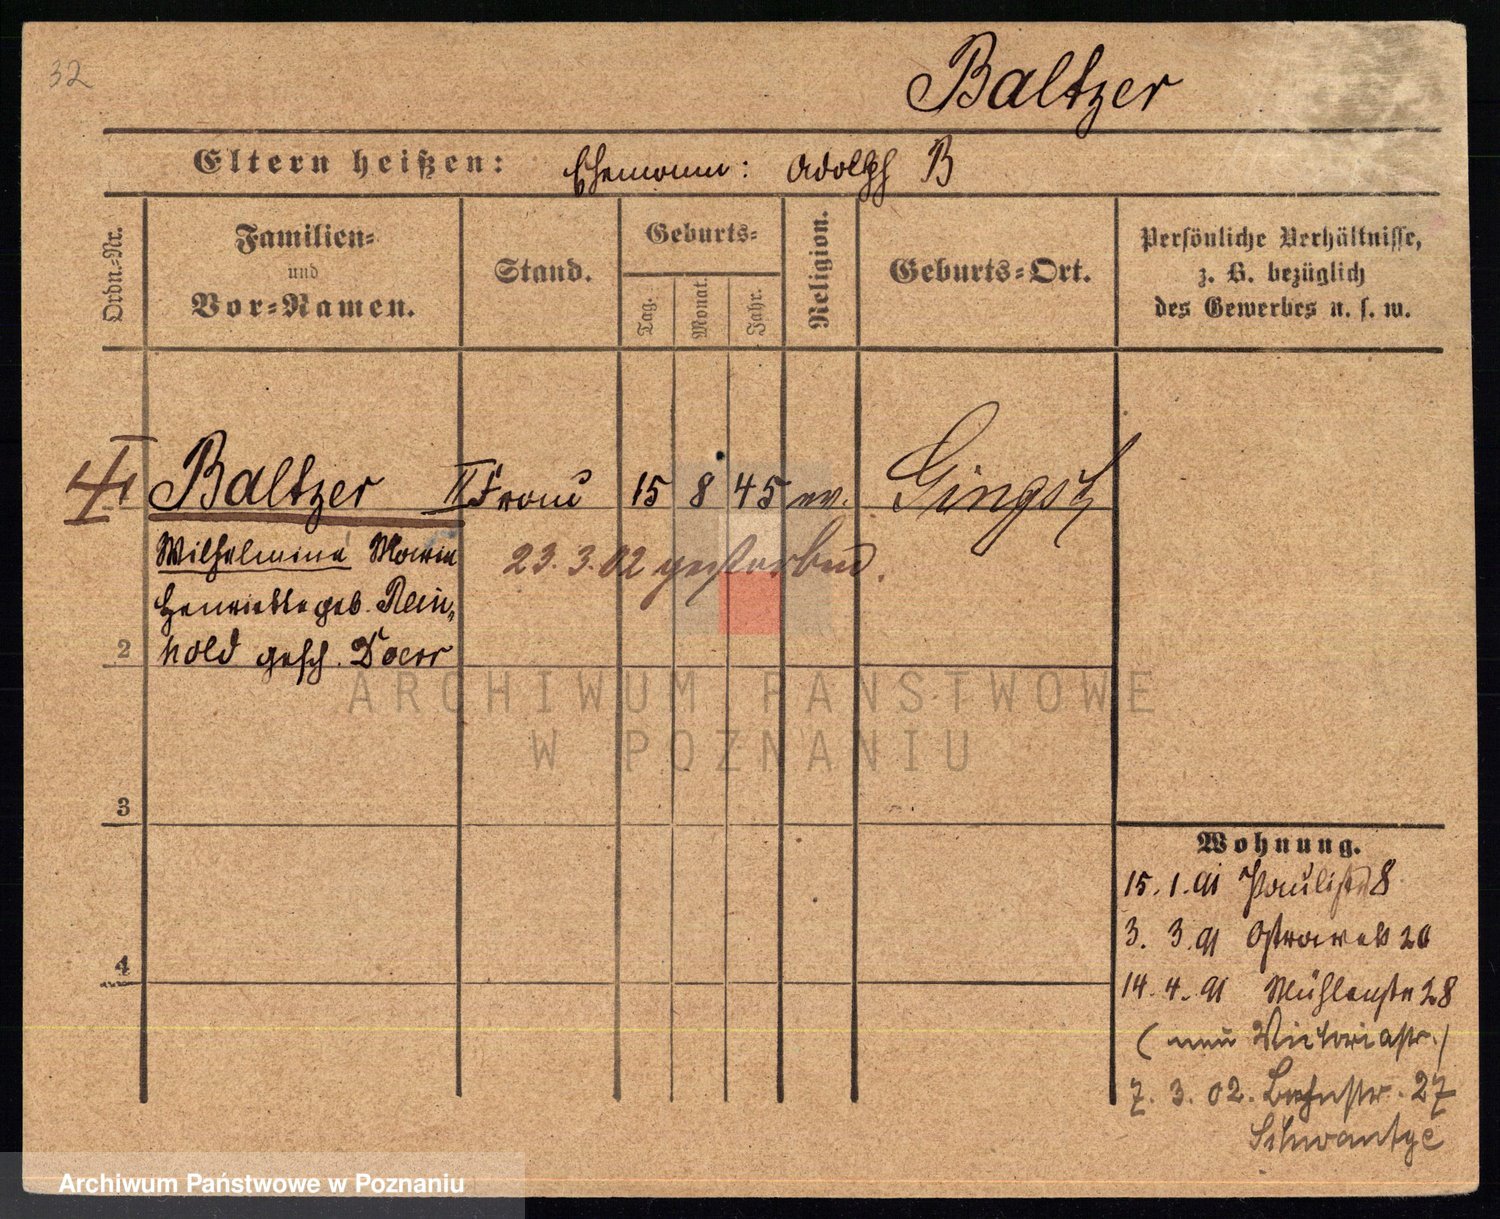 32
Baltzer
Eltern heißen: Ehemann: Adolph B
Ordn.-Nr.
Familien- und Vor-Namen.
Stand.
Geburts-
Tag.
Monat.
Jahr.
Religion.
Geburts-Ort.
Persönliche Verhältnisse,
z. B. bezüglich
des Gewerbes u. s. w.
Baltzer II Frau 15 8 45 ev. Gingst
Wilhelmine Marie
Henriette geb. Rein-
hold gesch. Doerr
23. 3. 02 gestorben.
2
3
4
Wohnung.
15. 1. 91 Paulistr 8
3. 3. 91 Ostrowek 20
14. 4. 91 Mühlenstr 28
(neu Victoriastr.)
7. 3. 02. 27
ARCHIWUM PAŃSTWOWE
W POZNANIU
Archiwum Państwowe w Poznaniu